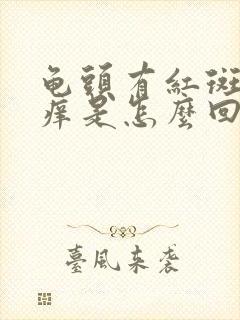 龟頭有紅斑
痒是怎麼回
臺風来袭